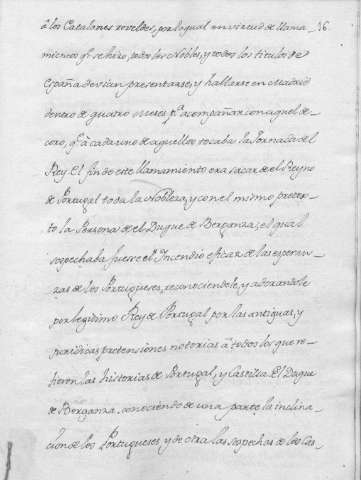 à los Catalanes reveldes, por la qual en virtud de llama_ 36.
miento q.e se hizo, todos los Nobles, y todos los titulos de
España devian presentarse, y hallarse en Madrid
dentro de quatro meses p.a acompañar con aquel de_
coro, q.e à cada uno de aquellos tocaba la Jornada del
Rey. El fin de este llamamiento era sacar del Reyno
de Portugal toda la Nobleza, y con el mismo pretex_
to la Persona del Duque de Berganza; el qual
sospechaba fuesse el Incendio eficaz de las esperan_
zas de los Portugueses, reconociendole, y adorandole
por legitimo Rey de Portugal por las antiguas, y
juridicas pretensiones notorias à todos los que re_
fieren las historias de Portugal, y Castilla. El Duque
de Berganza, conociendo de una parte la inclina_
cion de los Portugueses, y de otra las sospechas de los Cas_